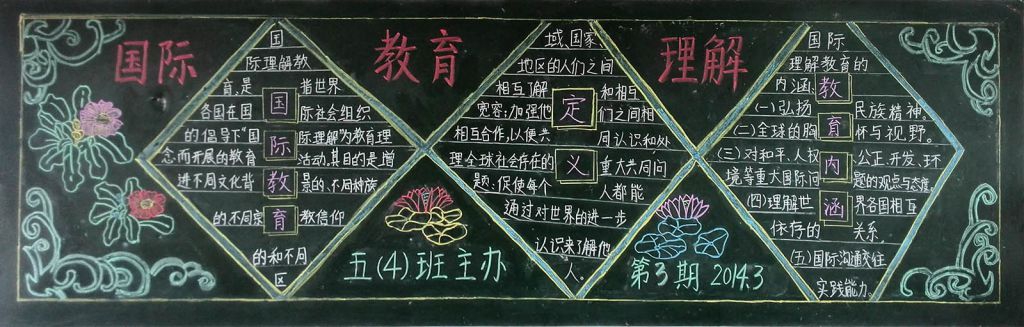 国际 教育 理解
国
际理解教
育,是 指世界
各国在国 际社会组织
的倡导下"国 际理解"为教育理
念而开展的教育 活动,其目的是增
进不同文化背 景的、不同种族
的不同宗 教信仰
的和不同
区
国际教育
域、国家
地区的人们之间
相互了解 和相互
宽容;加强他 们之间相
相互合作,以便共 同认识和处
理全球社会存在的 重大共同问
题;促使每个 人都能
通过对世界的进一步
认识来了解他
人。
定义
国际
理解教育的
内涵
(一)弘扬 民族精神。
(二)全球的胸 怀与视野。
(三)对和平、人权 公正、开发、环
境等重大国际问 题的观点与态度。
(四)理解世 界各国相互
依存的 关系,
(五)国际沟通交往
实践能力。
教育内涵
五(4)班主办
第3期 2014.3